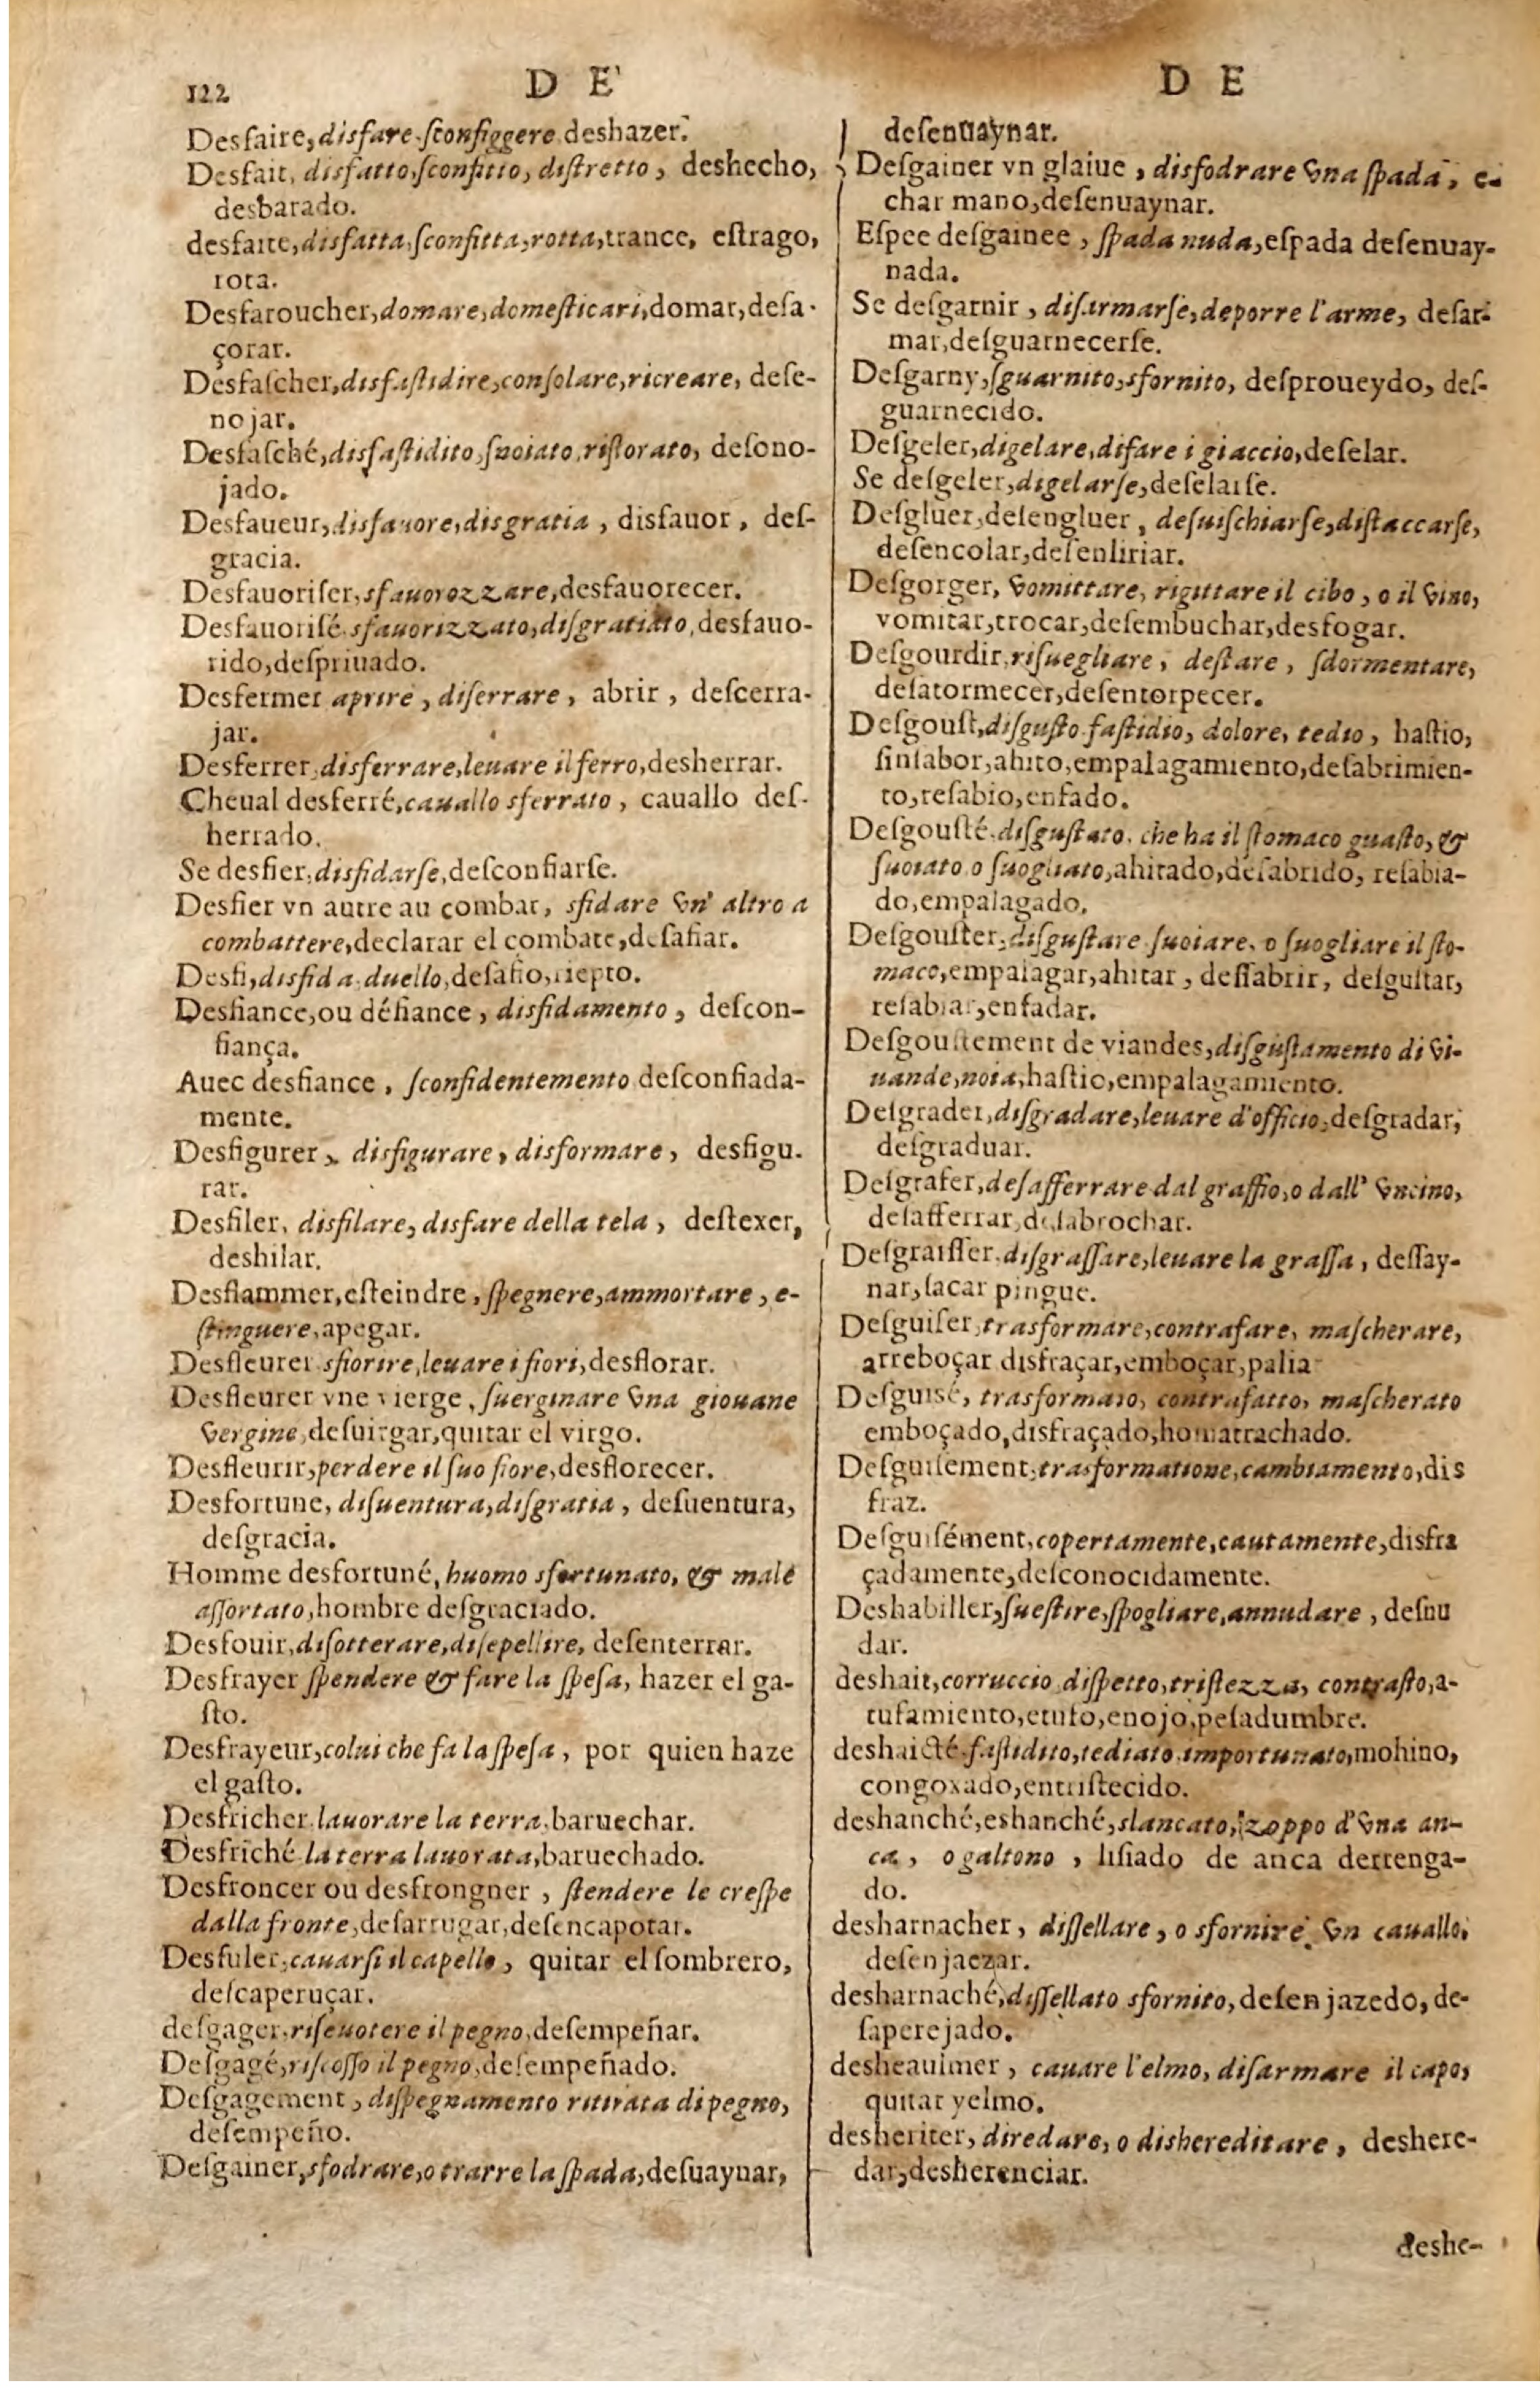 122
D E'
D E
Desfaire, disfare, ſconfiggere deshazer.
Desfait, disfatto, ſconfitto, diſtretto, deshecho,
desbarado.
desfaite, disfatta, ſconfitta, rotta, trance, eſtrago,
rota.
Desfaroucher, domare, domeſticari, domar, deſa-
çorar.
Desfaſcher, disfaſtidire, conſolare, ricreare, deſe-
nojar.
Desfaſché, disfaſtidito, ſnoiato, riſtorato, deſono-
jado.
Desfaueur, disfauore, disgratia, disfauor, deſ-
gracia.
Desfauoriſer, sfauorozzare, desfauorecer.
Desfauoriſé sfauorizzato, diſgratiato, desfauo-
rido, deſpriuado.
Desfermer aprire, diſerrare, abrir, deſcerra-
jar.
Desferrer, disferrare, leuare il ferro, desherrar.
Cheual desferré, cauallo sferrato, cauallo deſ-
herrado.
Se desfier, disfidarſe, deſconfiarſe.
Desfier vn autre au combat, sfidare vn' altro a
combattere, declarar el combate, deſafiar.
Desfi, disfida duello, deſafio, riepto.
Desfiance, ou défiance, disfidamento, deſcon-
fiança.
Auec desfiance, ſconfidentemento deſconfiada-
mente.
Desfigurer, disfigurare, disformare, desfigu.
rar.
Desfiler, disfilare, disfare della tela, deſtexer,
deshilar.
Desflammer, eſteindre, ſpegnere, ammortare, e-
ſtinguere, apegar.
Desfleurer sfiorire, leuare i fiori, desflorar.
Desfleurer vne vierge, ſuerginare vna giouane
vergine, deſuirgar, quitar el virgo.
Desfleurir, perdere il ſuo fiore, desflorecer.
Desfortune, diſuentura, diſgratia, deſuentura,
deſgracia.
Homme desfortuné, huomo sfortunato, & male
aſſortato, hombre deſgraciado.
Desfouir, diſotterare, diſepellire, deſenterrar.
Desfrayer ſpendere & fare la ſpeſa, hazer el ga-
ſto.
Desfrayeur, colui che fa la ſpeſa, por quien haze
el gaſto.
Desfricher lauorare la terra, baruechar.
Desfriché la terra lauorata, baruechado.
Desfroncer ou desfrongner, ſtendere le creſpe
dalla fronte, deſarrugar, deſencapotar.
Desfuler, cauarſi il capello, quitar el ſombrero,
deſcaperuçar.
deſgager, riſeuotere il pegno, deſempeñar.
Deſgagé, riſcoſſo il pegno, deſempeñado.
Deſgagement, diſpegnamento ritirata di pegno,
deſempeño.
Deſgainer, sfodrare, o trarre la ſpada, deſuaynar,
deſenuaynar.
Deſgainer vn glaiue, disfodrare vna ſpada, e-
char mano, deſenuaynar.
Eſpee deſgainee, ſpada nuda, eſpada deſenuay-
nada.
Se deſgarnir, diſarmarſe, deporre l'arme, deſar-
mar, deſguarnecerſe.
Deſgarny, ſguarnito, sfornito, deſproueydo, deſ-
guarnecido.
Deſgeler, digelare, difare i giaccio, deſelar.
Se deſgeler, digelarſe, deſelarſe.
Deſgluer, deſengluer, deſuiſchiarſe, diſtaccarſe,
deſencolar, deſenliriar.
Deſgorger, vomittare, rigittare il cibo, o il vino,
vomitar, trocar, deſembuchar, desfogar.
Deſgourdir, riſuegliare, deſtare, ſdormentare,
deſatormecer, deſentorpecer.
Deſgouſt, diſguſto faſtidio, dolore, tedio, haſtio,
ſinſabor, ahito, empalagamiento, deſabrimien-
to, reſabio, enfado.
Deſgouſté, diſguſtato, che ha il ſtomaco guaſto, &
ſuoiato o ſuogliato, ahitado, deſabrido, reſabia-
do, empalagado.
Deſgouſter, diſguſtare ſuoiare, o ſuogliare il ſto-
maco, empalagar, ahitar, deſſabrir, deſguſtar,
reſabiar, enfadar.
Deſgouſtement de viandes, diſguſtamento di vi-
uande, noia, haſtio, empalagamiento.
Deſgrader, diſgradare, leuare d'officio, deſgradar,
deſgraduar.
Deſgrafer, deſafferrare dal graffio, o dall' vncino,
deſafferrar, deſabrochar.
Deſgraiſſer, diſgraſſare, leuare la graſſa, deſſay-
nar, ſacar pingue.
Deſguiſer, trasformare, contrafare, maſcherare,
arreboçar disfraçar, emboçar, palia
Deſguisé, trasformato, contrafatto, maſcherato
emboçado, disfraçado, homarrachado.
Deſguiſement, trasformatione, cambiamento, dis
fraz.
Deſguiſément, copertamente, cautamente, disfra
çadamente, deſconocidamente.
Deshabiller, ſueſtire, ſpogliare, annudare, deſnu
dar.
deshait, corruccio diſpetto, triſtezza, contraſto, a-
tufamiento, etufo, enojo, peſadumbre.
deshaicté faſtidito, tediato importunato, mohino,
congoxado, entriſtecido.
deshanché, eshanché, slancato, zoppo d'vna an-
ca, o galtono, liſiado de anca derrenga-
do.
desharnacher, diſſellare, o sfornire vn cauallo,
deſenjaezar.
desharnaché, diſſellato sfornito, deſenjazedo, de-
ſaperejado.
desheaulmer, cauare l'elmo, diſarmare il capo,
quitar yelmo.
desheriter, diredare, o dishereditare, deshere-
dar, desherenciar.
deshe-